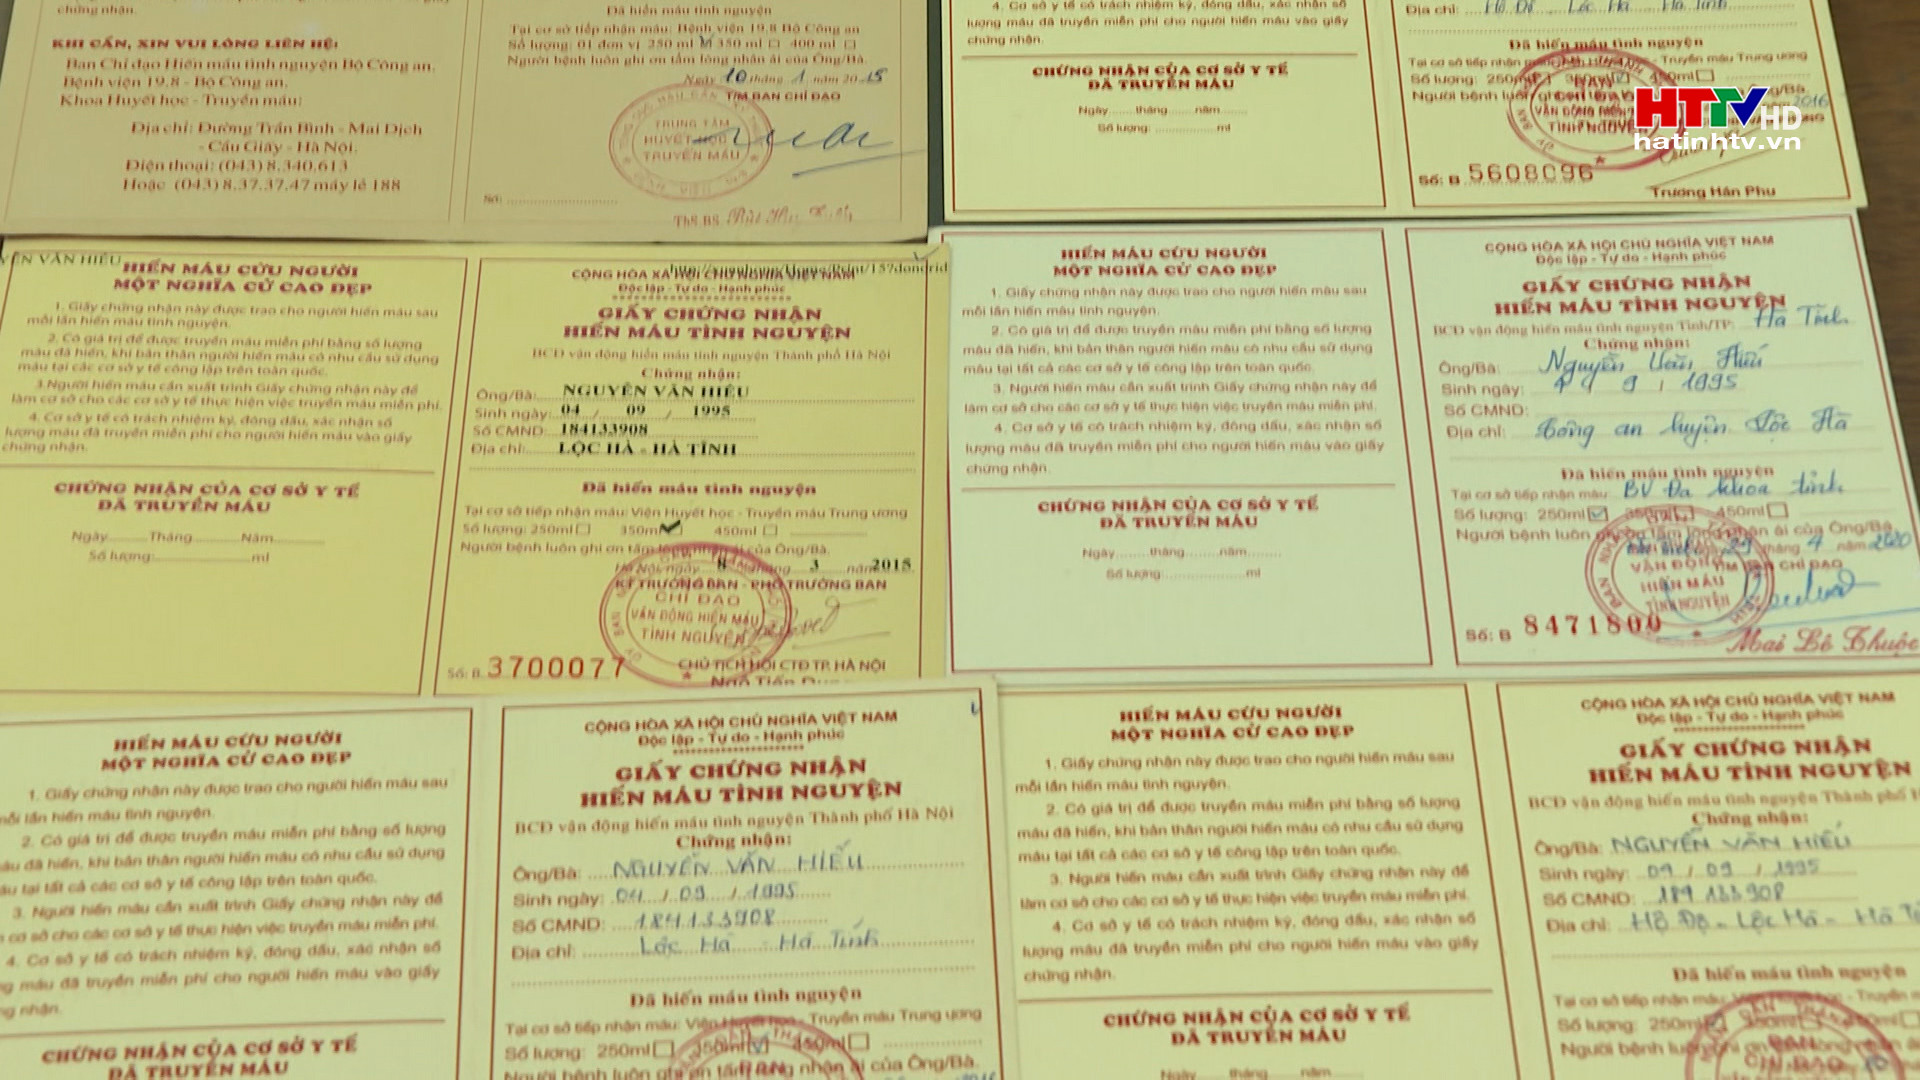 chứng nhận.
KHI CẦN, XIN VUI LÒNG LIÊN HỆ:
Ban Chỉ đạo Hiến máu tình nguyện Bộ Công an.
Bệnh viện 19.8 - Bộ Công an.
Khoa Huyết học - Truyền máu:
Địa chỉ: Đường Trần Bình - Mai Dịch
- Cầu Giấy - Hà Nội.
Điện thoại: (043) 8.340.613
Hoặc (043) 8.37.37.47 máy lẻ 188
Đã hiến máu tình nguyện
Tại cơ sở tiếp nhận máu: Bệnh viện 19.8 Bộ Công an
Số lượng: 01 đơn vị 250 ml 350 ml 400 ml
Người bệnh luôn ghi ơn tấm lòng nhân ái của Ông/Bà.
Ngày 10 tháng 1 năm 2015
TM BAN CHỈ ĐẠO
TRUNG TÂM
HUYẾT HỌC
TRUYỀN MÁU
Số:
ThS.BS.
4. Cơ sở y tế có trách nhiệm ký, đóng dấu, xác nhận số
lượng máu đã truyền miễn phí cho người hiến máu vào giấy
chứng nhận.
CHỨNG NHẬN CỦA CƠ SỞ Y TẾ
ĐÃ TRUYỀN MÁU
Ngày tháng năm
Số lượng: ml
Địa chỉ: Hộ Độ - Lộc Hà - Hà Tĩnh
Đã hiến máu tình nguyện
Tại cơ sở tiếp nhận máu: - Truyền máu Trung ương
Số lượng: 250ml 350ml 450ml
Người bệnh luôn ghi
2016
TÌNH NGUYỆN
Số: B 5608096
Trương Hán Phu
HTTV HD
hatinhtv.vn
YỄN VĂN HIẾU
HIẾN MÁU CỨU NGƯỜI
MỘT NGHĨA CỬ CAO ĐẸP
1. Giấy chứng nhận này được trao cho người hiến máu sau
mỗi lần hiến máu tình nguyện.
2. Có giá trị để được truyền máu miễn phí bằng số lượng
máu đã hiến, khi bản thân người hiến máu có nhu cầu sử dụng
máu tại các cơ sở y tế công lập trên toàn quốc.
3.Người hiến máu cần xuất trình Giấy chứng nhận này để
làm cơ sở cho các cơ sở y tế thực hiện việc truyền máu miễn phí.
4. Cơ sở y tế có trách nhiệm ký, đóng dấu, xác nhận số
lượng máu đã truyền miễn phí cho người hiến máu vào giấy
chứng nhận.
CHỨNG NHẬN CỦA CƠ SỞ Y TẾ
ĐÃ TRUYỀN MÁU
Ngày Tháng Năm
Số lượng: ml
CỘNG HÒA XÃ HỘI CHỦ NGHĨA VIỆT NAM
Độc lập - Tự do - Hạnh phúc
GIẤY CHỨNG NHẬN
HIẾN MÁU TÌNH NGUYỆN
BCĐ vận động hiến máu tình nguyện Thành phố Hà Nội
Chứng nhận:
Ông/Bà: NGUYỄN VĂN HIẾU
Sinh ngày: 04 / 09 / 1995
Số CMND: 184133908
Địa chỉ: LỘC HÀ - HÀ TĨNH
Đã hiến máu tình nguyện
Tại cơ sở tiếp nhận máu: Viện Huyết học - Truyền máu Trung ương
Số lượng: 250ml 350ml 450ml
Người bệnh luôn ghi ơn tấm lòng nhân ái của Ông/Bà.
Hà Nội, ngày 8 tháng 3 năm 2015
KT TRƯỞNG BAN - PHÓ TRƯỞNG BAN
CHỈ ĐẠO
VẬN ĐỘNG HIẾN MÁU
TÌNH NGUYỆN
Số: B 3700077
CHỦ TỊCH HỘI CTĐ TP. HÀ NỘI
HIẾN MÁU CỨU NGƯỜI
MỘT NGHĨA CỬ CAO ĐẸP
1. Giấy chứng nhận này được trao cho người hiến máu sau
mỗi lần hiến máu tình nguyện.
2. Có giá trị để được truyền máu miễn phí bằng số lượng
máu đã hiến, khi bản thân người hiến máu có nhu cầu sử dụng
máu tại tất cả các cơ sở y tế công lập trên toàn quốc.
3. Người hiến máu cần xuất trình Giấy chứng nhận này để
làm cơ sở cho các cơ sở y tế thực hiện việc truyền máu miễn phí.
4. Cơ sở y tế có trách nhiệm ký, đóng dấu, xác nhận số
lượng máu đã truyền miễn phí cho người hiến máu vào giấy
chứng nhận.
CHỨNG NHẬN CỦA CƠ SỞ Y TẾ
ĐÃ TRUYỀN MÁU
Ngày tháng năm
Số lượng: ml
CỘNG HÒA XÃ HỘI CHỦ NGHĨA VIỆT NAM
Độc lập - Tự do - Hạnh phúc
GIẤY CHỨNG NHẬN
HIẾN MÁU TÌNH NGUYỆN
BCĐ vận động hiến máu tình nguyện Tỉnh/TP: Hà Tĩnh
Chứng nhận:
Ông/Bà: Nguyễn Văn Hiếu
Sinh ngày: 4 / 9 / 1995
Số CMND:
Địa chỉ: Công an huyện Lộc Hà
Đã hiến máu tình nguyện
Tại cơ sở tiếp nhận máu: BV Đa khoa tỉnh
Số lượng: 250ml 350ml 450ml
Người bệnh luôn ghi ơn tấm lòng nhân ái của Ông/Bà.
ngày 29 tháng 4 năm 2020
TM BAN CHỈ ĐẠO
VẬN ĐỘNG
HIẾN MÁU
TÌNH NGUYỆN
Số: B 8471800
Mai Lê Thuộc
HIẾN MÁU CỨU NGƯỜI
MỘT NGHĨA CỬ CAO ĐẸP
1. Giấy chứng nhận này được trao cho người hiến máu sau
mỗi lần hiến máu tình nguyện.
2. Có giá trị để được truyền máu miễn phí bằng số lượng
máu đã hiến, khi bản thân người hiến máu có nhu cầu sử dụng
máu tại tất cả các cơ sở y tế công lập trên toàn quốc.
3. Người hiến máu cần xuất trình Giấy chứng nhận này để
cơ sở cho các cơ sở y tế thực hiện việc truyền máu miễn phí.
4. Cơ sở y tế có trách nhiệm ký, đóng dấu, xác nhận số
máu đã truyền miễn phí cho người hiến máu vào giấy
nhận.
CHỨNG NHẬN CỦA CƠ SỞ Y TẾ
ĐÃ TRUYỀN MÁU
CỘNG HÒA XÃ HỘI CHỦ NGHĨA VIỆT NAM
Độc lập - Tự do - Hạnh phúc
GIẤY CHỨNG NHẬN
HIẾN MÁU TÌNH NGUYỆN
BCĐ vận động hiến máu tình nguyện Thành phố Hà Nội
Chứng nhận:
Ông/Bà: NGUYỄN VĂN HIẾU
Sinh ngày: 04 / 09 / 1995
Số CMND: 184133908
Địa chỉ: Lộc Hà - Hà Tĩnh
Đã hiến máu tình nguyện
Tại cơ sở tiếp nhận máu: Viện Huyết học - Truyền máu Trung ương
Số lượng: 250ml 350ml 450ml
Người bệnh luôn ghi ơn tấm lòng nhân ái của Ông/Bà.
HIẾN MÁU CỨU NGƯỜI
MỘT NGHĨA CỬ CAO ĐẸP
1. Giấy chứng nhận này được trao cho người hiến máu sau
mỗi lần hiến máu tình nguyện.
2. Có giá trị để được truyền máu miễn phí bằng số lượng
máu đã hiến, khi bản thân người hiến máu có nhu cầu sử dụng
máu tại tất cả các cơ sở y tế công lập trên toàn quốc.
3. Người hiến máu cần xuất trình Giấy chứng nhận này để
làm cơ sở cho các cơ sở y tế thực hiện việc truyền máu miễn phí.
4. Cơ sở y tế có trách nhiệm ký, đóng dấu, xác nhận số
lượng máu đã truyền miễn phí cho người hiến máu vào giấy
chứng nhận.
CHỨNG NHẬN CỦA CƠ SỞ Y TẾ
ĐÃ TRUYỀN MÁU
Ngày tháng năm
CỘNG HÒA XÃ HỘI CHỦ NGHĨA VIỆT NAM
Độc lập - Tự do - Hạnh phúc
GIẤY CHỨNG NHẬN
HIẾN MÁU TÌNH NGUYỆN
BCĐ vận động hiến máu tình nguyện Thành phố
Chứng nhận:
Ông/Bà: NGUYỄN VĂN HIẾU
Sinh ngày: 04 / 09 / 1995
Số CMND: 184133908
Địa chỉ: Hộ Độ - Lộc Hà - Hà
Đã hiến máu tình nguyện
Tại cơ sở tiếp nhận máu: Viện Huyết học - Truyền máu
Số lượng: 250ml
Người bệnh luôn ghi ơn tấm lòng nhân ái
BAN
CHỈ ĐẠO